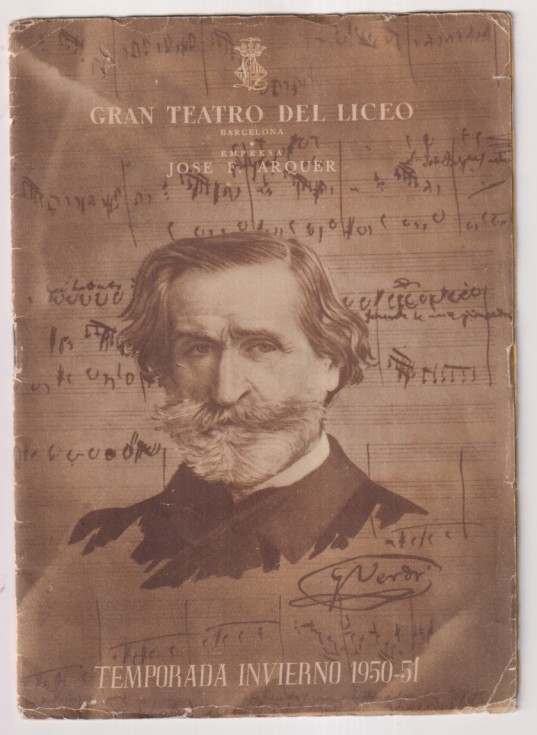 GRAN TEATRO DEL LICEO
BARCELONA
EMPRESA
JOSE F. ARQUER
G Verdi
TEMPORADA INVIERNO 1950-51